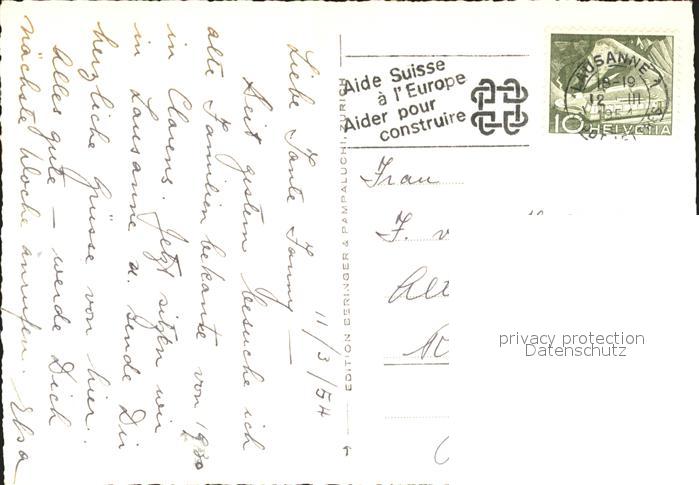 11/3/54
Liebe Tante Fanny —
Seit gestern besuche ich
alte Familienbekannte von 1930
in Clarens. Jetzt sitzen wir
in Lausanne u. sende Dir
herzliche Grüsse von hier.
Alles gute — werde Dich
nächste Woche anrufen. Elsa
EDITION BERINGER & PAMPALUCHI, ZÜRICH
Aide Suisse
à l'Europe
Aider pour
construire
LAUSANNE 1
18-19
12 III
10 HELVETIA
Frau
F. v
privacy protection
Datenschutz